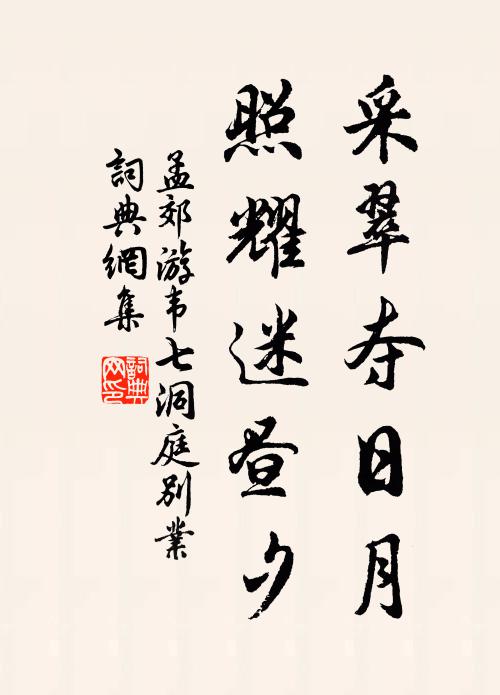 采翠夺日月
照耀迷昼夕
孟郊游韦七洞庭别業
詞典網集
詞典网印